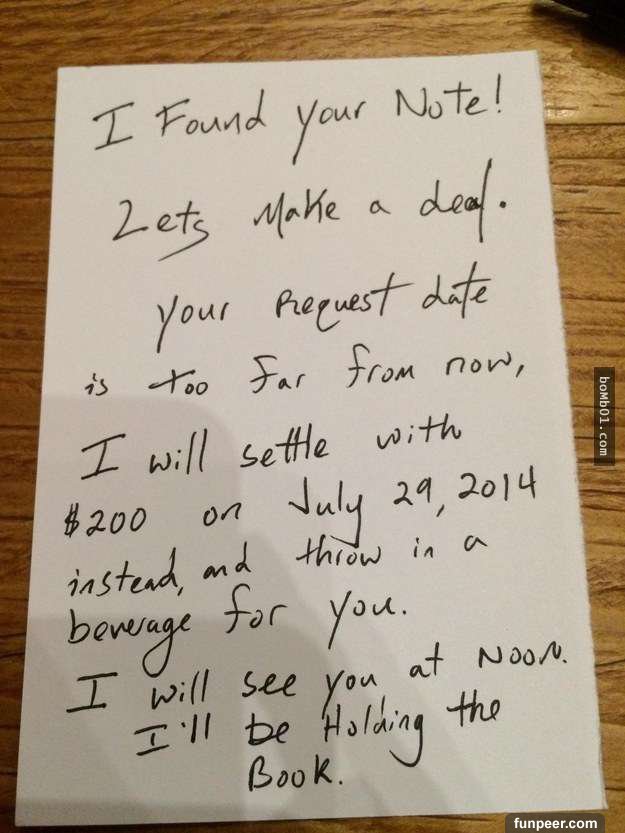 I Found your Note!
Lets Make a deal.
your Request date
is too far from now,
I will settle with
$200 on July 29, 2014
instead, and throw in a
beverage for you.
I will see you at Noon.
I'll be Holding the
Book.
boMb01.com
funpeer.com